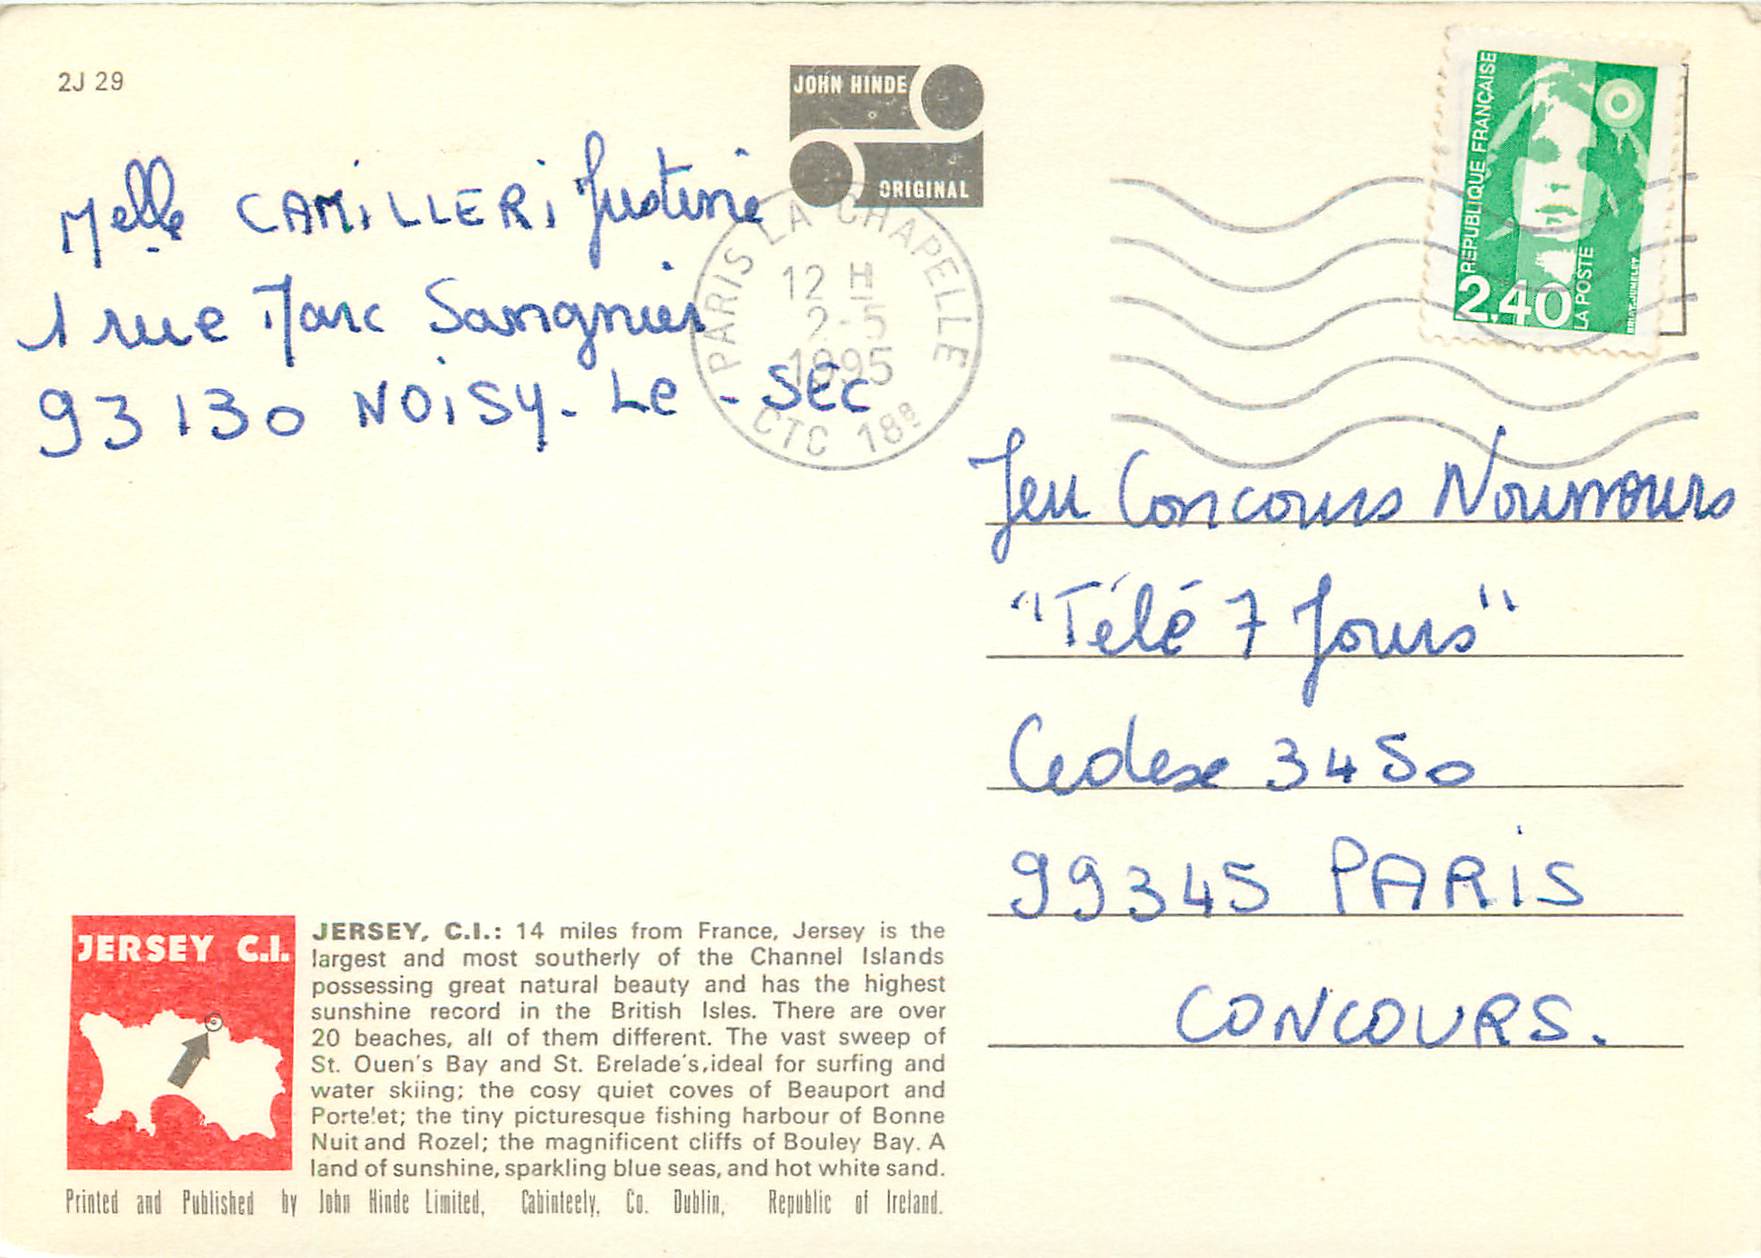 2J 29
JOHN HINDE
ORIGINAL
REPUBLIQUE FRANÇAISE
2,40
LA POSTE
BRIAT-JUMELET
PARIS LA CHAPELLE
12 H
2-5
1995
CTC 18e
Melle CAMiLLERi Justine
1 rue Marc Sangnier
93130 NOiSY-Le-SEC
Jeu Concours Nounours
"Télé 7 Jours"
Cedex 3450
99345 PARiS
CONCOURS.
JERSEY C.I.
JERSEY, C.I.: 14 miles from France, Jersey is the
largest and most southerly of the Channel Islands
possessing great natural beauty and has the highest
sunshine record in the British Isles. There are over
20 beaches, all of them different. The vast sweep of
St. Ouen's Bay and St. Brelade's, ideal for surfing and
water skiing; the cosy quiet coves of Beauport and
Portelet; the tiny picturesque fishing harbour of Bonne
Nuit and Rozel; the magnificent cliffs of Bouley Bay. A
land of sunshine, sparkling blue seas, and hot white sand.
Printed and Published by John Hinde Limited, Cabinteely, Co. Dublin, Republic of Ireland.